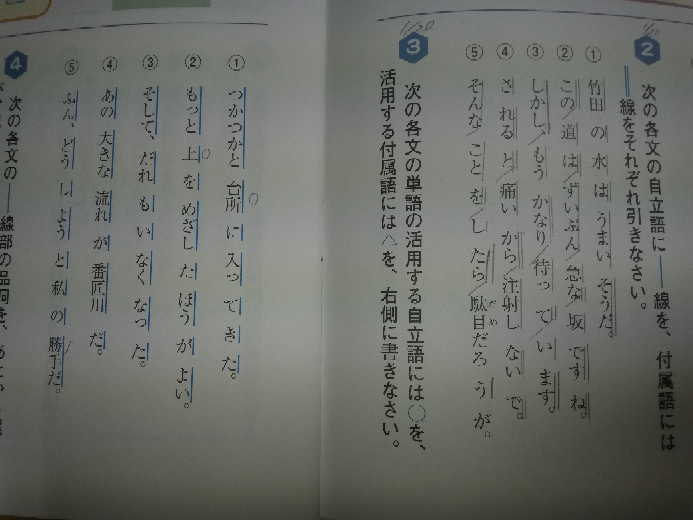 1/20
2
次の各文の自立語に――線を、付属語には
＝＝線をそれぞれ引きなさい。
① 竹田の水はうまいそうだ。
② この道はずいぶん急な坂ですね。
③ しかし、もうかなり待っています。
④ されると痛いから注射しないで。
⑤ そんなことをしたら駄目だろうが。
だめ
1/20
3
次の各文の単語の活用する自立語には○を、
活用する付属語には△を、右側に書きなさい。
① つかつかと台所に入ってきた。
② もっと上をめざしたほうがよい。
③ そして、だれもいなくなった。
④ あの大きな流れが番匠川だ。
⑤ ふん、どうしようと私の勝手だ。
4
次の各文の――線部の品詞を、